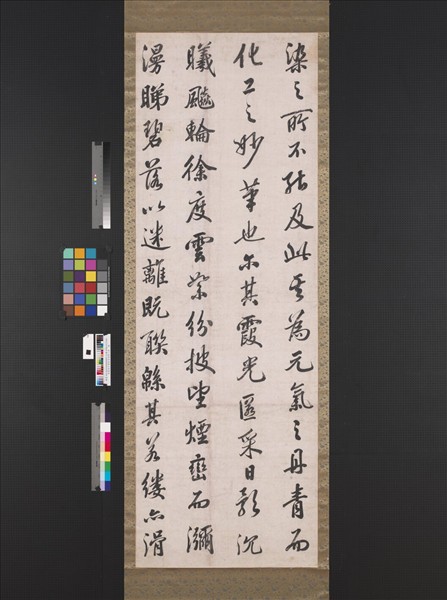 染之所不能及此其為元氣之丹青而
化工之妙筆也尒其霞光匿采日影沉
曦飈輪徐度雲紛披望煙巒而瀰
漫睇碧落以迷離既聯緜其若縷亦滑